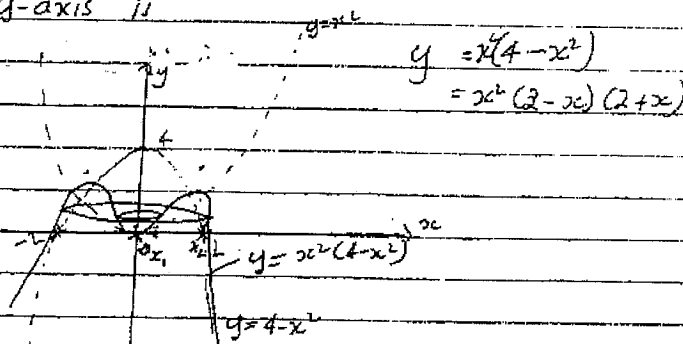 y-axis is
y=x²
y = x²(4-x²)
= x²(2-x)(2+x)
y
4
-2
x₁
x₂
2
x
y = x²(4-x²)
y=4-x²